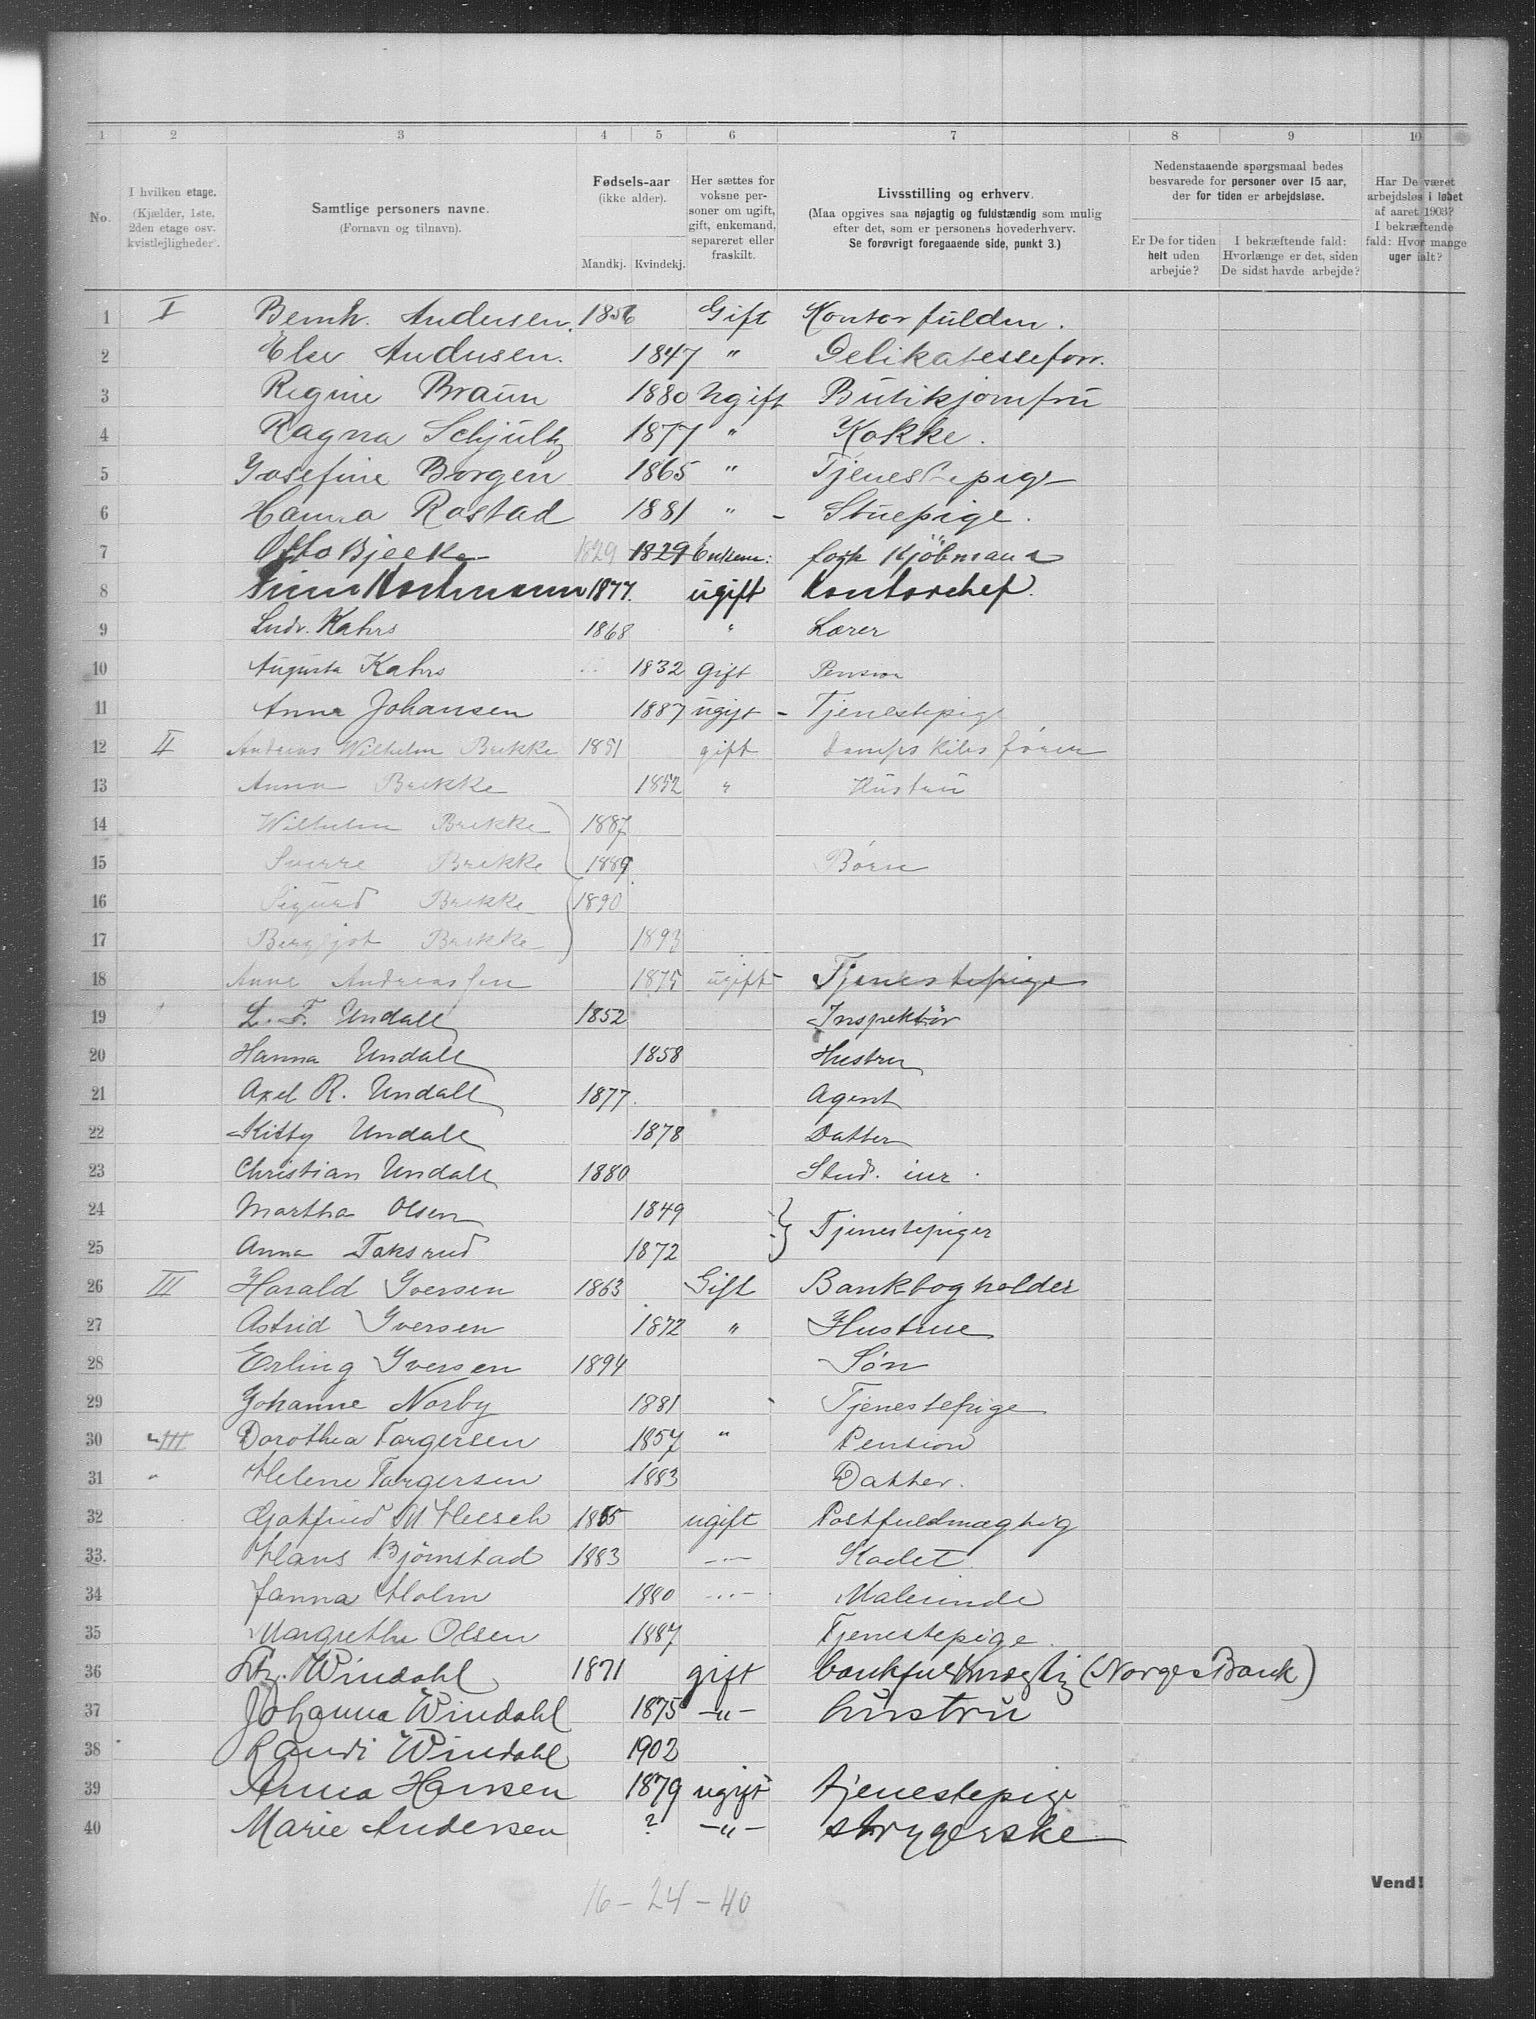 1 2 3 4 5 6 7 8 9 10
No.
I hvilken etage.
(Kjælder, 1ste, 2den etage osv. kvistlejligheder).
Samtlige personers navne.
(Fornavn og tilnavn).
Fødsels-aar
(ikke alder).
Mandkj. Kvindekj.
Her sættes for voksne personer om ugift, gift, enkemand, separeret eller fraskilt.
Livsstilling og erhverv.
(Maa opgives saa nøjagtig og fuldstændig som mulig
efter det, som er personens hovederhverv.
Se forøvrigt foregaaende side, punkt 3.)
Nedenstaaende spørgsmaal bedes
besvarede for personer over 15 aar,
der for tiden er arbejdsløse.
Er De for tiden helt uden arbejde?
I bekræftende fald: Hvorlænge er det, siden De sidst havde arbejde?
Har De været arbejdsløs i løbet af aaret 1903? I bekræftende fald: Hvor mange uger ialt?
1 I Bernh. Andersen. 1856 Gift Kontorfuldm.
2 Else Andersen. 1847 " Delikatesseforr.
3 Regine Braun 1880 Ugift Butikjomfru
4 Ragna Schjultz 1877 " Kokke.
5 Josefine Borgen 1865 " Tjenestepige
6 Hanna Rostad 1881 " - Stuepige.
7 Otto Bjecke 1829 1829 Enkem: forh Kjöbmann
8 1877. ugift Kontorchef.
9 Ludv. Kahrs 1868 " Lærer
10 Augusta Kahrs 1832 Gift Pension
11 Anna Johansen 1887 ugift - Tjenestepige
12 II Andreas Wilhelm Brekke 1851 gift Dampskibsfører
13 Anna Brekke 1852 " Hustru
14 Wilhelm Brekke 1887
15 Sverre Brekke 1889 Børn
16 Sigurd Brekke 1890
17 Bergljot Brekke 1893
18 Anne Andreassen 1875 ugift Tjenestepige
19 L. F. Undall 1852 Inspektör
20 Hanna Undall 1858 Hustru
21 Axel R. Undall 1877. Agent
22 Kitty Undall 1878 Datter
23 Christian Undall 1880 Stud. iur.
24 Martha Olsen 1849
Tjenestepiger
25 Anna Taksrud 1872
26 III Harald Iversen 1863 Gift Bankbogholder
27 Astrid Iversen 1872 " Hustrue
28 Erling Iversen 1894 Søn
29 Johanne Norby 1881 Tjenestepige
30 III Dorothea Torgersen 1857 " Pension
31 " Helene Torgersen 1883 Datter.
32 Gotfried M Heesch 1865 ugift Postfuldmægtig
33. Hans Bjørnstad 1883 -"- Kadet
34 Janna Holm 1880 -"- Malerinde
35 Margrethe Olsen 1887 Tjenestepige.
36 Windahl 1871 gift bankfuldmægtig (Norges Bank)
37 Johanna Windahl 1875 -"- hustru
38 Randi Windahl 1902
39 Anna Hansen 1879 ugift tjenestepige
40 Marie Andersen ? -"- strygerske
Vend!
16 - 24 - 40